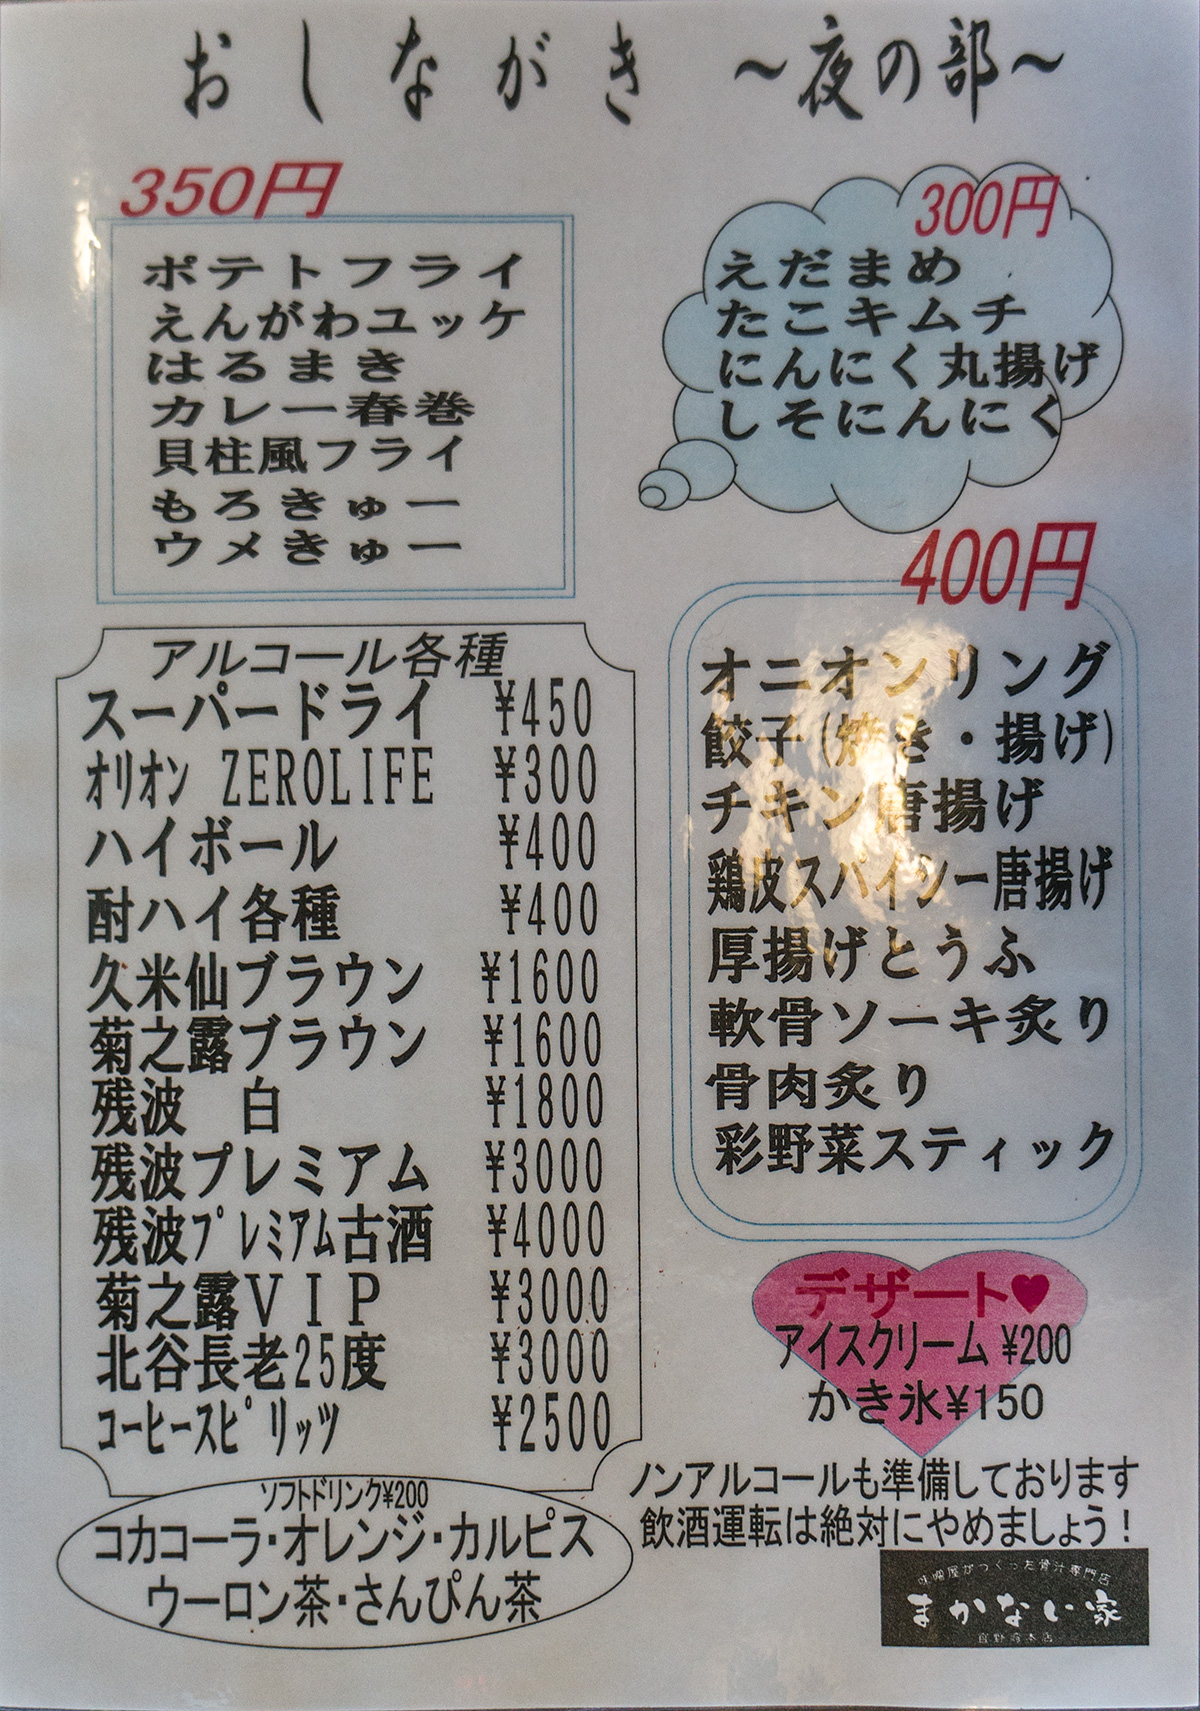 おしながき ～夜の部～
350円
ポテトフライ
えんがわユッケ
はるまき
カレー春巻
貝柱風フライ
もろきゅー
ウメきゅー
300円
えだまめ
たこキムチ
にんにく丸揚げ
しそにんにく
400円
オニオンリング
餃子(焼き・揚げ)
チキン唐揚げ
鶏皮スパイシー唐揚げ
厚揚げとうふ
軟骨ソーキ炙り
骨肉炙り
彩野菜スティック
アルコール各種
スーパードライ ¥450
ｵﾘｵﾝ ZEROLIFE ¥300
ハイボール ¥400
酎ハイ各種 ¥400
久米仙ブラウン ¥1600
菊之露ブラウン ¥1600
残波　白 ¥1800
残波プレミアム ¥3000
残波ﾌﾟﾚﾐｱﾑ古酒 ¥4000
菊之露ＶＩＰ ¥3000
北谷長老25度 ¥3000
ｺｰﾋｰｽﾋﾟﾘｯﾂ ¥2500
ソフトドリンク¥200
コカコーラ・オレンジ・カルピス
ウーロン茶・さんぴん茶
デザート♥
アイスクリーム ¥200
かき氷¥150
ノンアルコールも準備しております
飲酒運転は絶対にやめましょう！
味噌屋がつくった骨汁専門店
まかない家
宜野湾本店